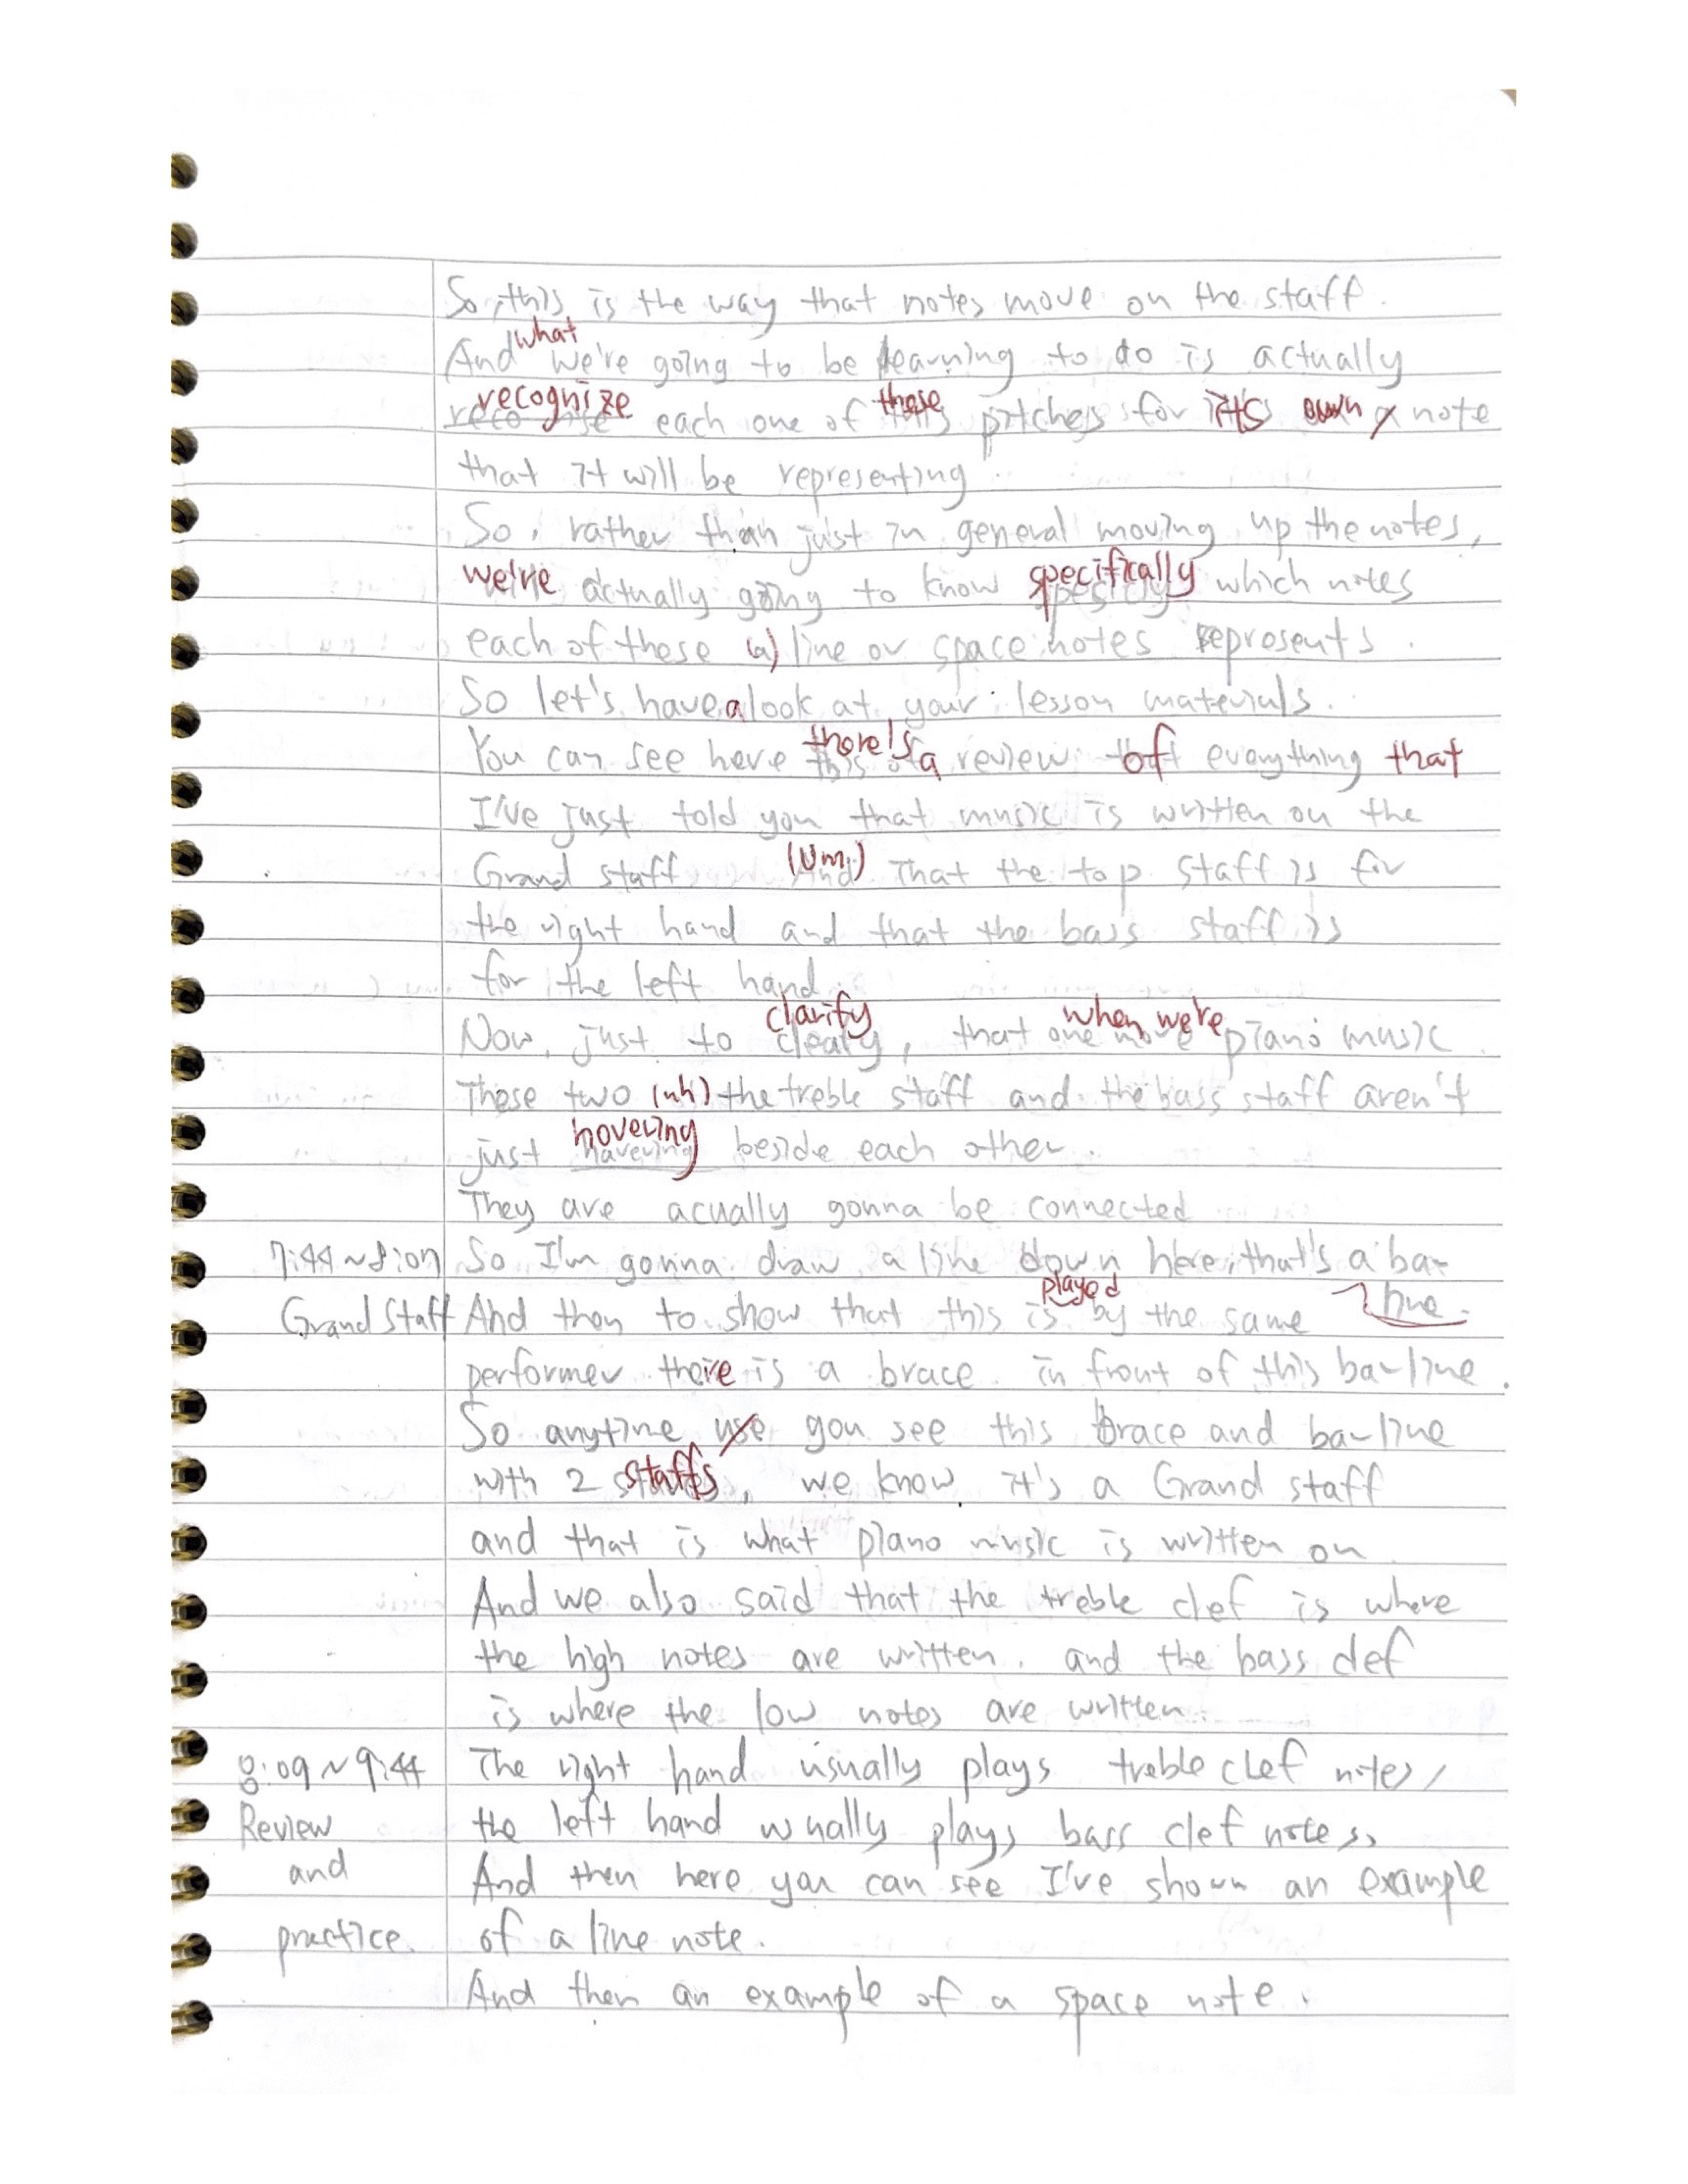 So, this is the way that notes move on the staff.
And what we're going to be learning to do is actually
recognize each one of these pitches for its own note
that it will be representing
So, rather than just in general moving up the notes,
we're actually going to know specifically which notes
each of these (a) line or space notes represents.
So let's have a look at your lesson materials.
You can see here there's a review of everything that
I've just told you that music is written on the
Grand staff (Um,) That the top staff is for
the right hand and that the bass staff is
for the left hand.
Now, just to clarify, that when we're piano music.
These two (uh) the treble staff and the bass staff aren't
just hovering beside each other.
They are acually gonna be connected
So I'm gonna draw a line down here, that's a bar
line.
Grand Staff And then to show that this is played by the same
performer there is a brace in front of this bar line.
So anytime you see this brace and bar line
with 2 staffs, we know it's a Grand staff
and that is what piano music is written on
And we also said that the treble clef is where
the high notes are written. and the bass clef
is where the low notes are written.
8:09 ~ 9:44 The right hand usually plays treble clef notes,
Review the left hand usually plays bass clef notes,
and And then here you can see I've shown an example
practice. of a line note.
And then an example of a space note.